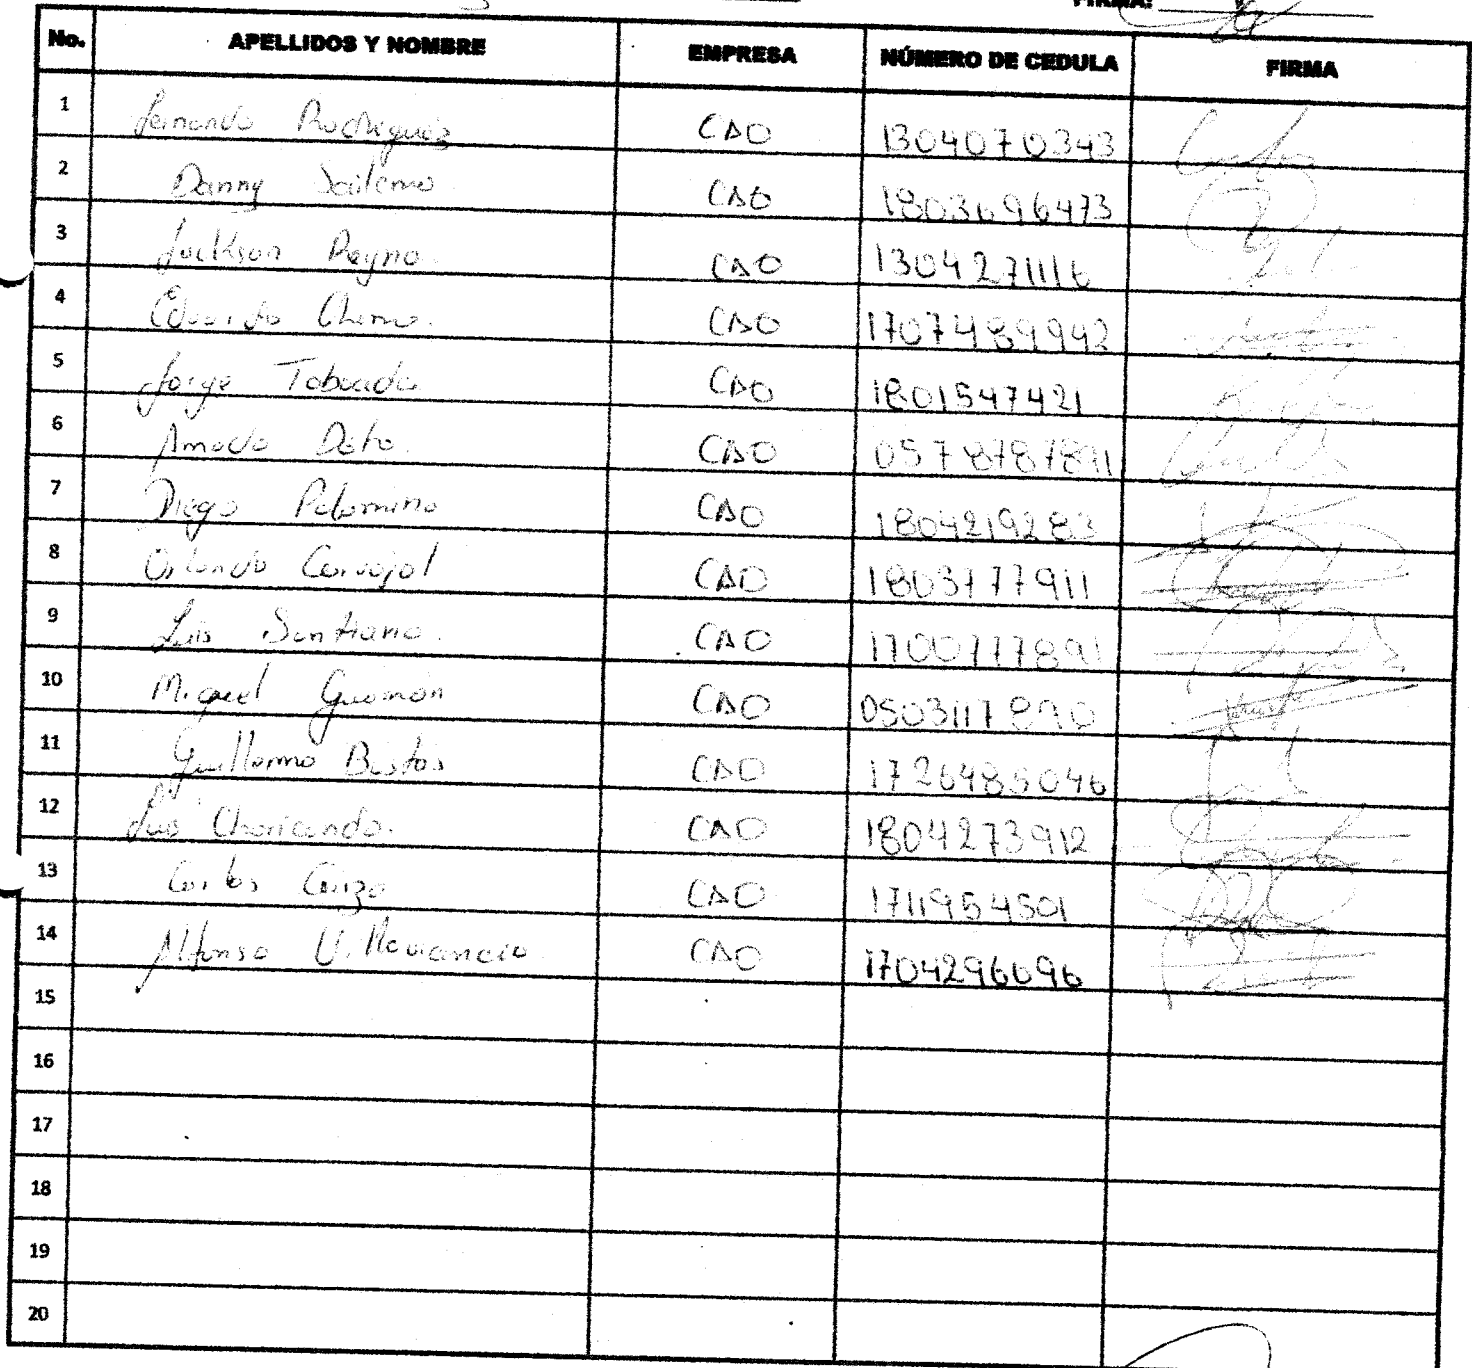 FIRMA:
No. APELLIDOS Y NOMBRE EMPRESA NÚMERO DE CEDULA FIRMA
1 Fernando Rodriguez CAO 1304070343
2 Danny Sailema CAO 1803696473
3 Jackson Reyna. CAO 1304271116
4 Eduardo Chimo. CAO 1707489942
5 Jorge Taboada CAO 1801547421
6 Amado Dato. CAO 0578787891
7 Diego Palomino CAO 1804219283
8 Orlando Carvajal CAO 1803777911
9 Luis Santiana. CAO 1700777891
10 Miguel Guamán CAO 0503117890
11 Guillermo Bustos CAO 1726485046
12 Luis Charicando. CAO 1804273912
13 Carlos CAO 1711954501
14 Alfonso Villavicencio CAO 1704296096
15
16
17
18
19
20